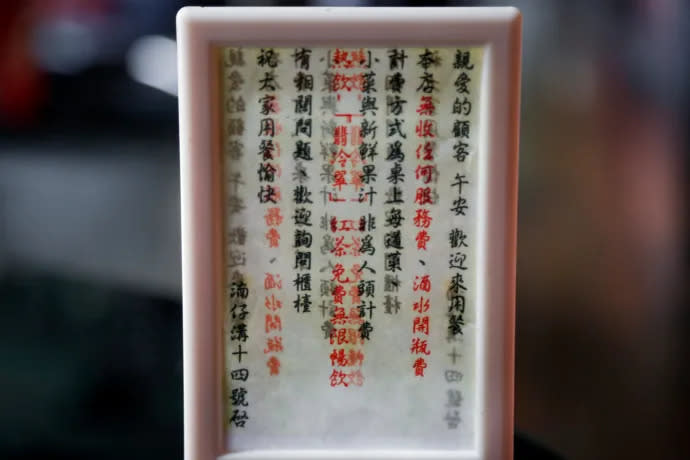 親愛的顧客 午安 歡迎來用餐
本店無收任何服務費、酒水開瓶費
計費方式為桌上每道菜、
小菜與新鮮果汁 非為人頭計費
熱飲「翡冷翠」紅茶免費無限暢飲
有相關問題、歡迎詢問櫃檯
祝大家用餐愉快
湳仔溝十四號啓